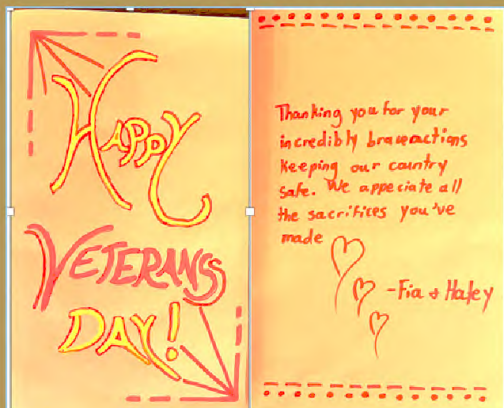 Happy
Veterans
Day!
Thanking you for your
incredibly brave actions
keeping our country
safe. We appeciate all
the sacrifices you've
made
-Fia & Haley